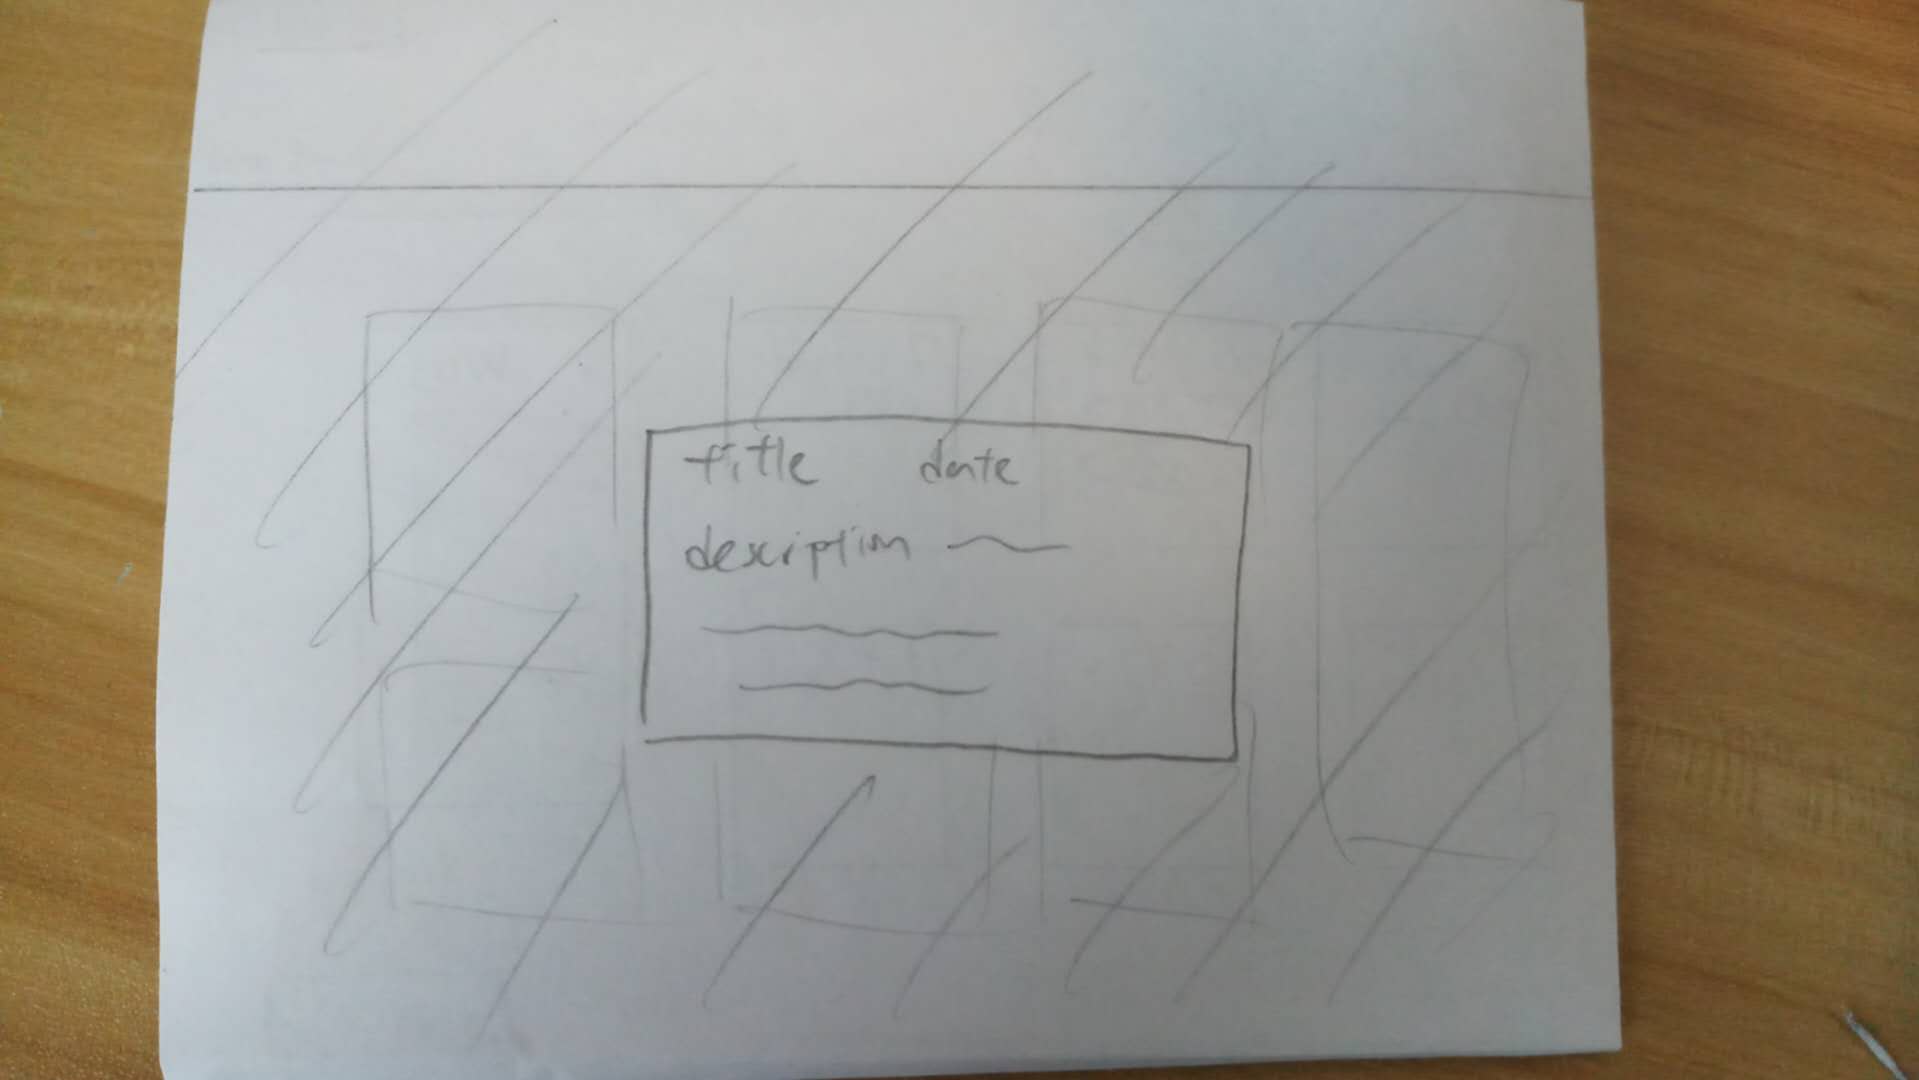 title date
description